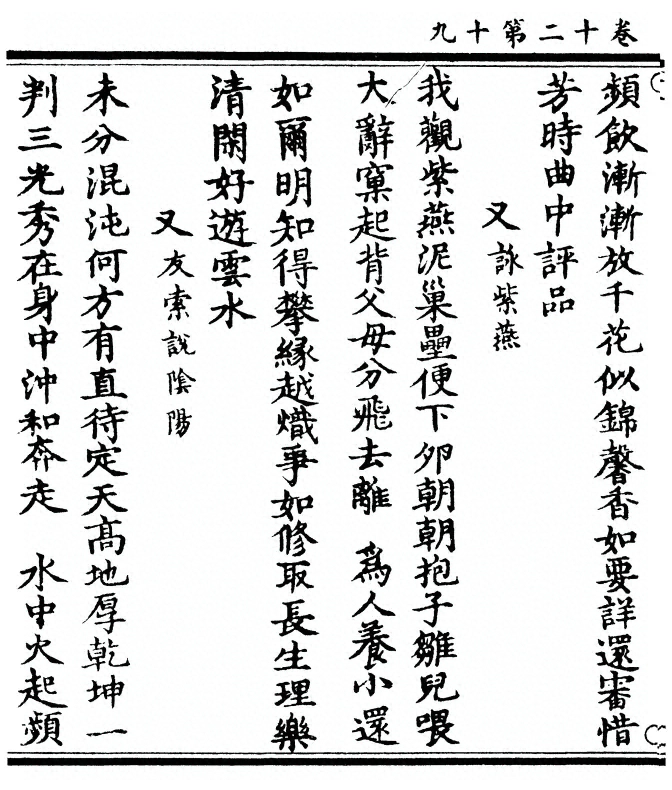 卷十二第十九
頻飲漸漸放千花似錦馨香如要詳還審惜
芳時曲中評品
又 詠紫燕
我觀紫燕泥巢壘便下卵朝朝抱子雛兒喂
大辭窠起背父母分飛去離 為人養小還
如爾明知得攀緣越熾爭如修取長生理樂
清閑好遊雲水
又 友索說陰陽
未分混沌何方有直待定天高地厚乾坤一
判三光秀在身中沖和奔走 水中火起頻